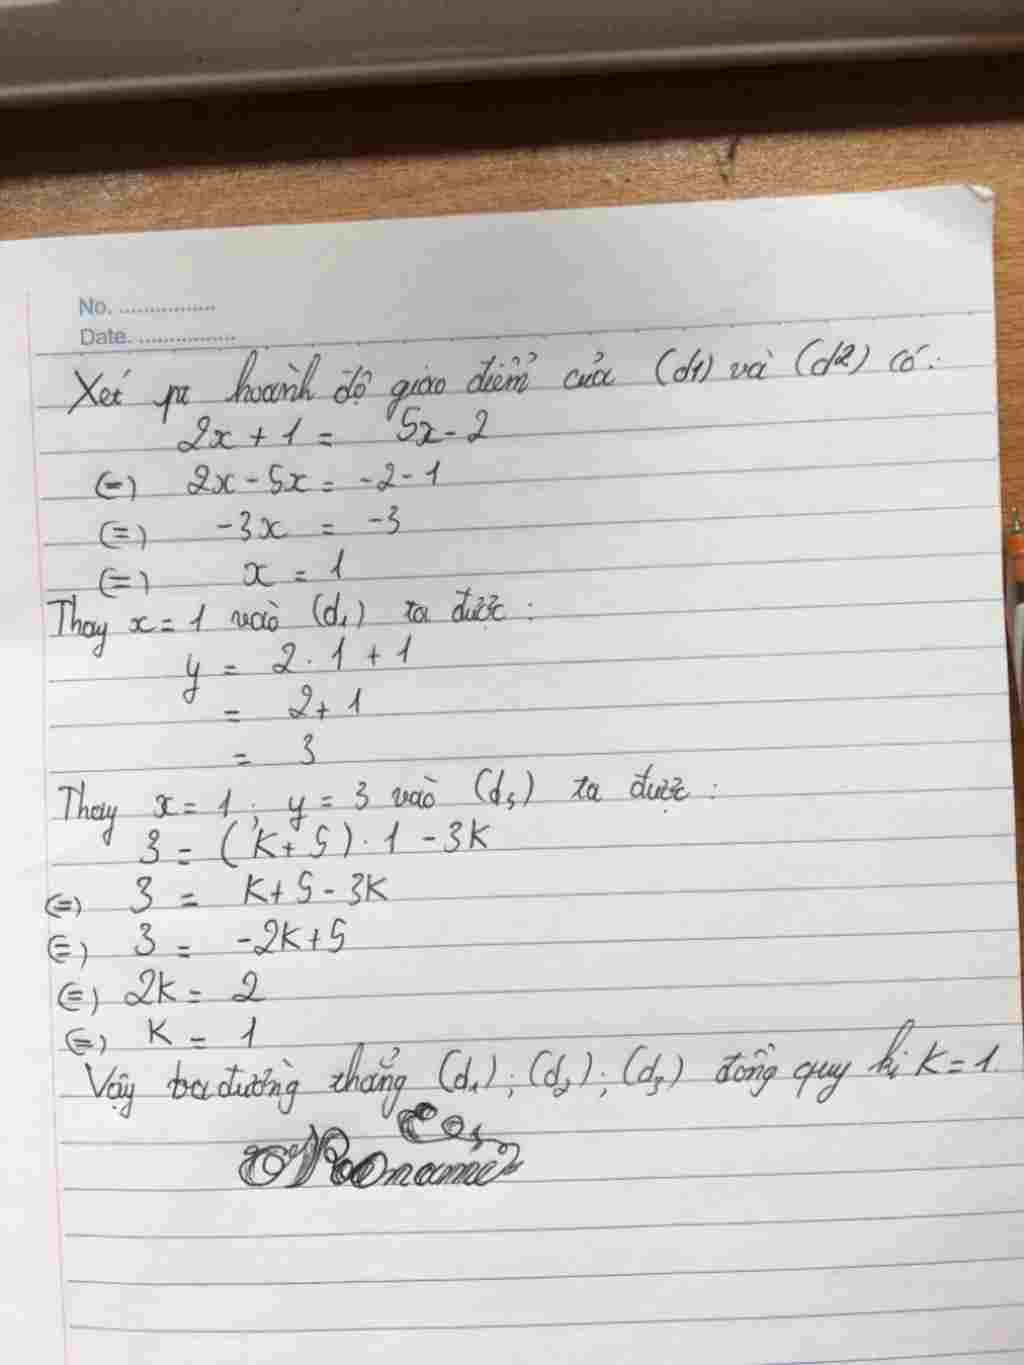 No. ................
Date. ................
Xét pt hoành độ giao điểm của (d1) và (d2) có:
2x + 1 = 5x - 2
(=) 2x - 5x = -2 - 1
(=) -3x = -3
(=) x = 1
Thay x = 1 vào (d₁) ta được:
y = 2 . 1 + 1
= 2 + 1
= 3
Thay x = 1 ; y = 3 vào (d₃) ta được:
3 = (k + 5) . 1 - 3k
(=) 3 = k + 5 - 3k
(=) 3 = -2k + 5
(=) 2k = 2
(=) k = 1
Vậy ba đường thẳng (d₁) ; (d₂) ; (d₃) đồng quy khi k = 1.